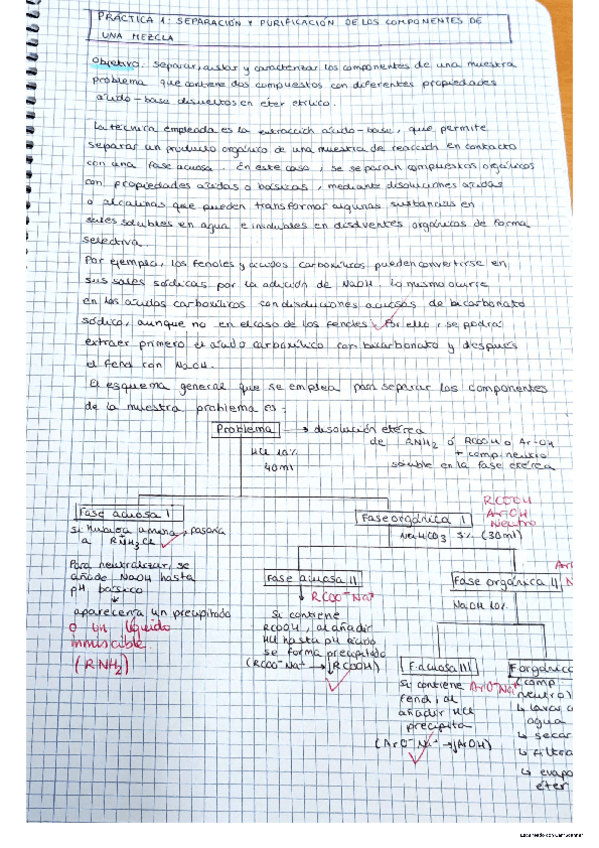 PRÁCTICA 1: SEPARACIÓN Y PURIFICACIÓN DE LOS COMPONENTES DE
UNA MEZCLA
Objetivo: separar, aislar y caracterizar los componentes de una muestra
problema que contiene dos compuestos con diferentes propiedades
ácido-base disueltos en éter etílico.
La técnica empleada es la extracción ácido-base, que permite
separar un producto orgánico de una muestra de reacción en contacto
con una fase acuosa. En este caso, se separan compuestos orgánicos
con propiedades ácidas o básicas, mediante disoluciones ácidas
o alcalinas que pueden transformar algunas sustancias en
sales solubles en agua e insolubles en disolventes orgánicos de forma
selectiva.
Por ejemplo, los fenoles y ácidos carboxílicos pueden convertirse en
sus sales sódicas por la adición de NaOH. Lo mismo ocurre
en los ácidos carboxílicos con disoluciones acuosas de bicarbonato
sódico, aunque no en el caso de los fenoles. Por ello, se podrá
extraer primero el ácido carboxílico con bicarbonato y después
el fenol con NaOH.
El esquema general que se emplea para separar los componentes
de la muestra problema es:
Problema → disolución etérea
de RNH2 ó RCOOH o Ar-OH
+ comp. neutro
soluble en la fase etérea
HCl 10%
40ml
Fase acuosa I
si hubiera amina, pasaría
a RNH3Cl
Para neutralizar, se
añade NaOH hasta
pH básico
↓
aparecerá un precipitado
o un líquido
inmiscible
(RNH2)
Fase orgánica I
RCOOH
ArOH
Neutro
NaHCO3 5% (30ml)
Fase acuosa II
↓ RCOO-Na+
Si contiene
RCOOH, al añadir
HCl hasta pH ácido
se forma precipitado
(RCOO-Na+ → ↓RCOOH)
Fase orgánica II
Ar
N
NaOH 10%
F. acuosa III
Si contiene ArO-Na+
fenol, de
añadir HCl
precipita
(ArO-Na+ → ↓ArOH)
F. orgánica
comp.
neutro
↳ lavar c
agua
↳ secar
↳ filtra
↳ evapo
éter